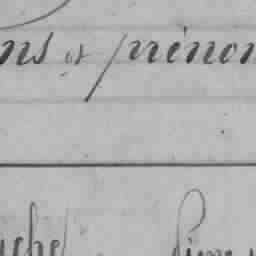 ns et prénom
uchet Pierre